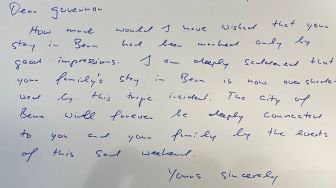 Dear governor
How much would I have wished that your
stay in Bern had been marked only by
good impressions. I am deeply saddened that
your family's stay in Bern is now overshado-
wed by this tragic incident. The city of
Bern will forever be deeply connected
to you and your family by the events
of this sad weekend.
Yours sincerely